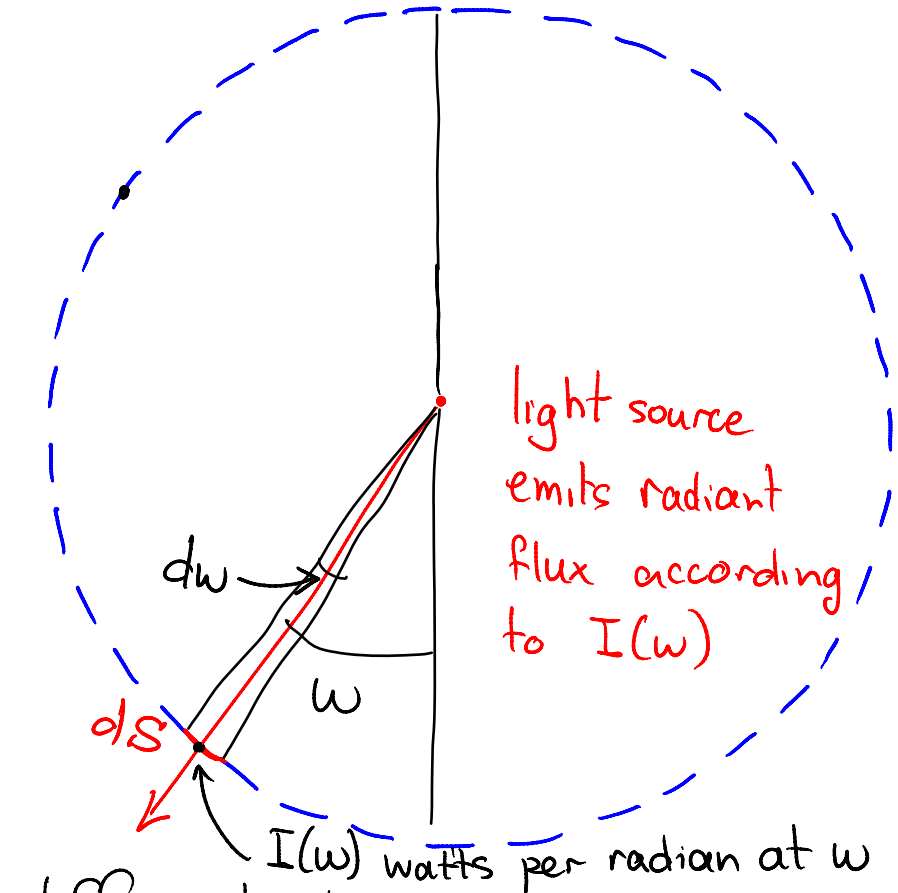 light source
emits radiant
flux according
to I(w)
dw
w
ds
I(w) watts per radian at w